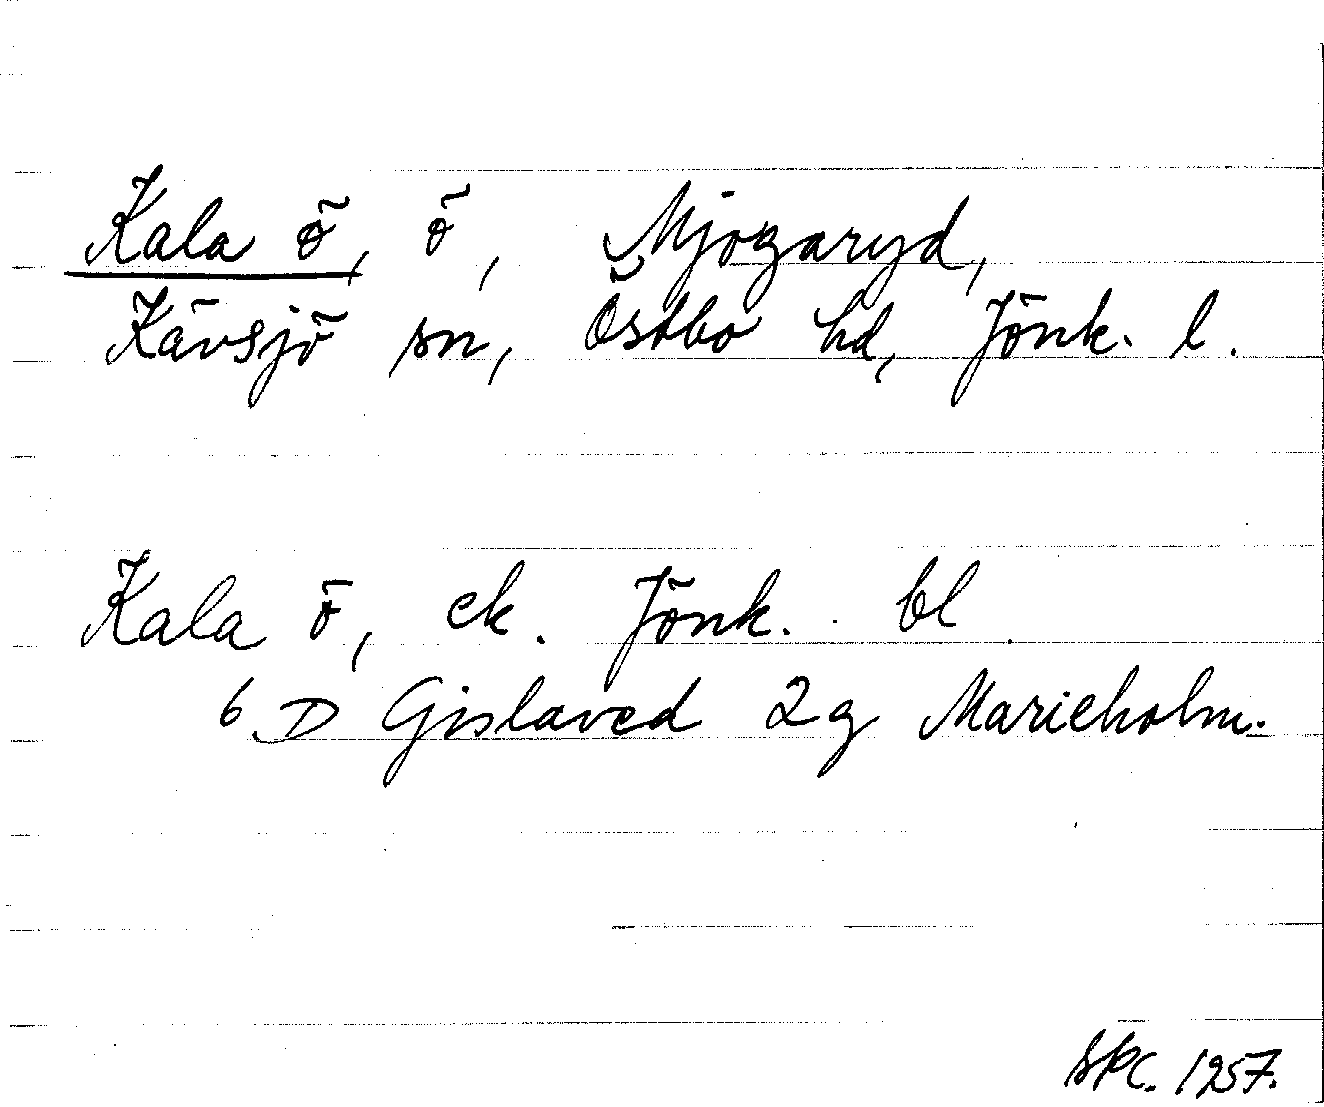 Kala ö, ö, Mjogaryd,
Kävsjö sn, Östbo hd, Jönk. l.
Kala ö, ek. Jönk. bl.
6 D Gislaved 2g Marieholm.
SPC. 1957.